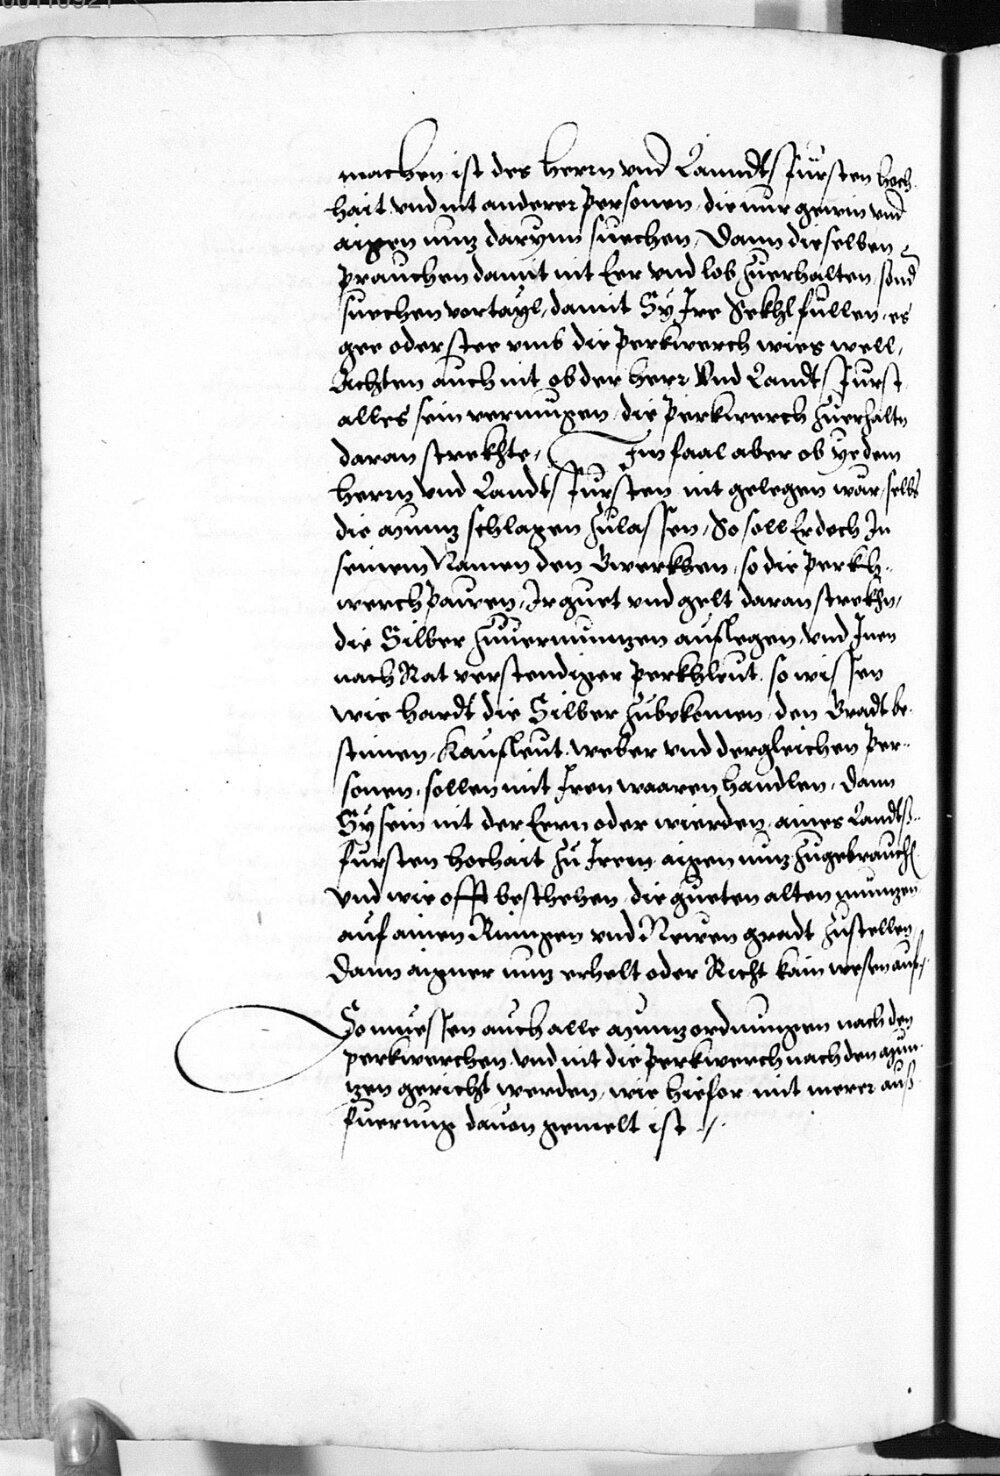 machen ist des herrn vnd Lanndts Fürsten hoch
hait vnd nit anderer Personen, die nur gewin vnd
aigen nutz darynn suechen, Dann dieselben
prauchen damit nit Eer vnd lob zuerhalten, sond
suechen vortayl, damit Sy Ire Sekhl füllen, es
gee oder stee vmb die Perkwerch wies well,
Achten auch nit ob der herr Vnd Landts Furst
alles sein vermugen, die Perkwerch zuerhaltn
daran strekhte, Im faal aber ob yedem
herrn Vnd Landts Fürsten nit gelegen wär, selbs
die munz schlagen zulassen, So soll Er doch In
seinem Namen den Gwerkhen, so die Perkh-
werch pawen, Ir guet vnd gelt daran strekhn,
die Silber zuuermunzen auflegen, vnd Inen
nach Rat verstendiger Perkhleut, so wissen
wie hardt die Silber zubekomen, den Gradt be-
stimen, Kaufleut, weber vnd dergleichen Per-
sonen, sollen mit Iren waaren handlen, Dann
Sy sein nit der Eern oder wierden, aines Landts-
fürsten hochait zu Irem aigen nutz zugebrauchen
vnd wie offt beschehen, die gueten alten munzen
auf ainen Ringen vnd Newen gradt zustellen,
Dann aigner nutz erhelt oder Richt kain wesen auf,
So muessen auch alle munzordnungen nach den
perkwerchen, vnd nit die Perkwerch nach den mun-
zen gericht werden, wie hiefor mit merer auß-
fuerung dauon gemelt ist